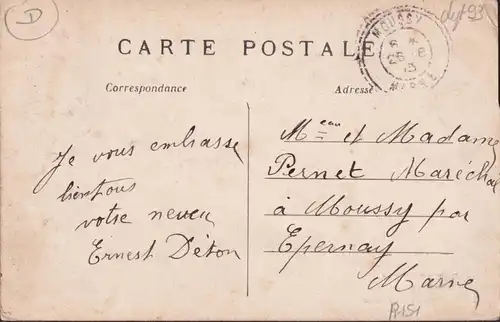 D
dyt 93
MOUSSY
MARNE
CARTE POSTALE
Correspondance
Adresse
Je vous embrasse
bientous
votre neveu
Ernest Déton
Meau et Madame
Pernet Maréchal
à Moussy par
Epernay
Marne
R151